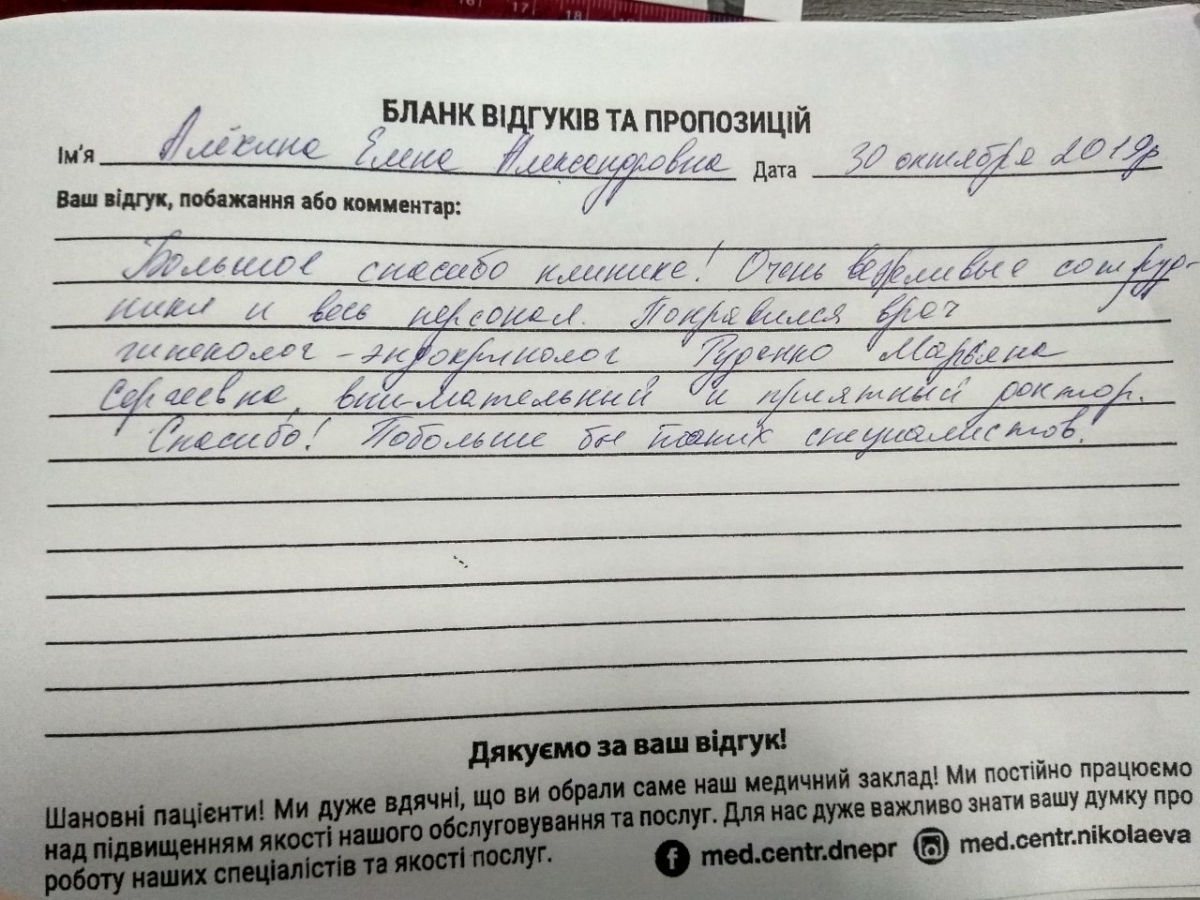 БЛАНК ВІДГУКІВ ТА ПРОПОЗИЦІЙ
Ім'я Алёхина Елена Александровна Дата 30 октября 2019р
Ваш відгук, побажання або комментар:
Большое спасибо клинике! Очень вежливые сотруд-
ники и весь персонал. Понравился врач
гинеколог-эндокринолог Руденко Марьяна
Сергеевна, внимательный и приятный доктор.
Спасибо! Побольше бы таких специалистов!
Дякуємо за ваш відгук!
Шановні пацієнти! Ми дуже вдячні, що ви обрали саме наш медичний заклад! Ми постійно працюємо
над підвищенням якості нашого обслуговування та послуг. Для нас дуже важливо знати вашу думку про
роботу наших спеціалістів та якості послуг.
med.centr.dnepr med.centr.nikolaeva